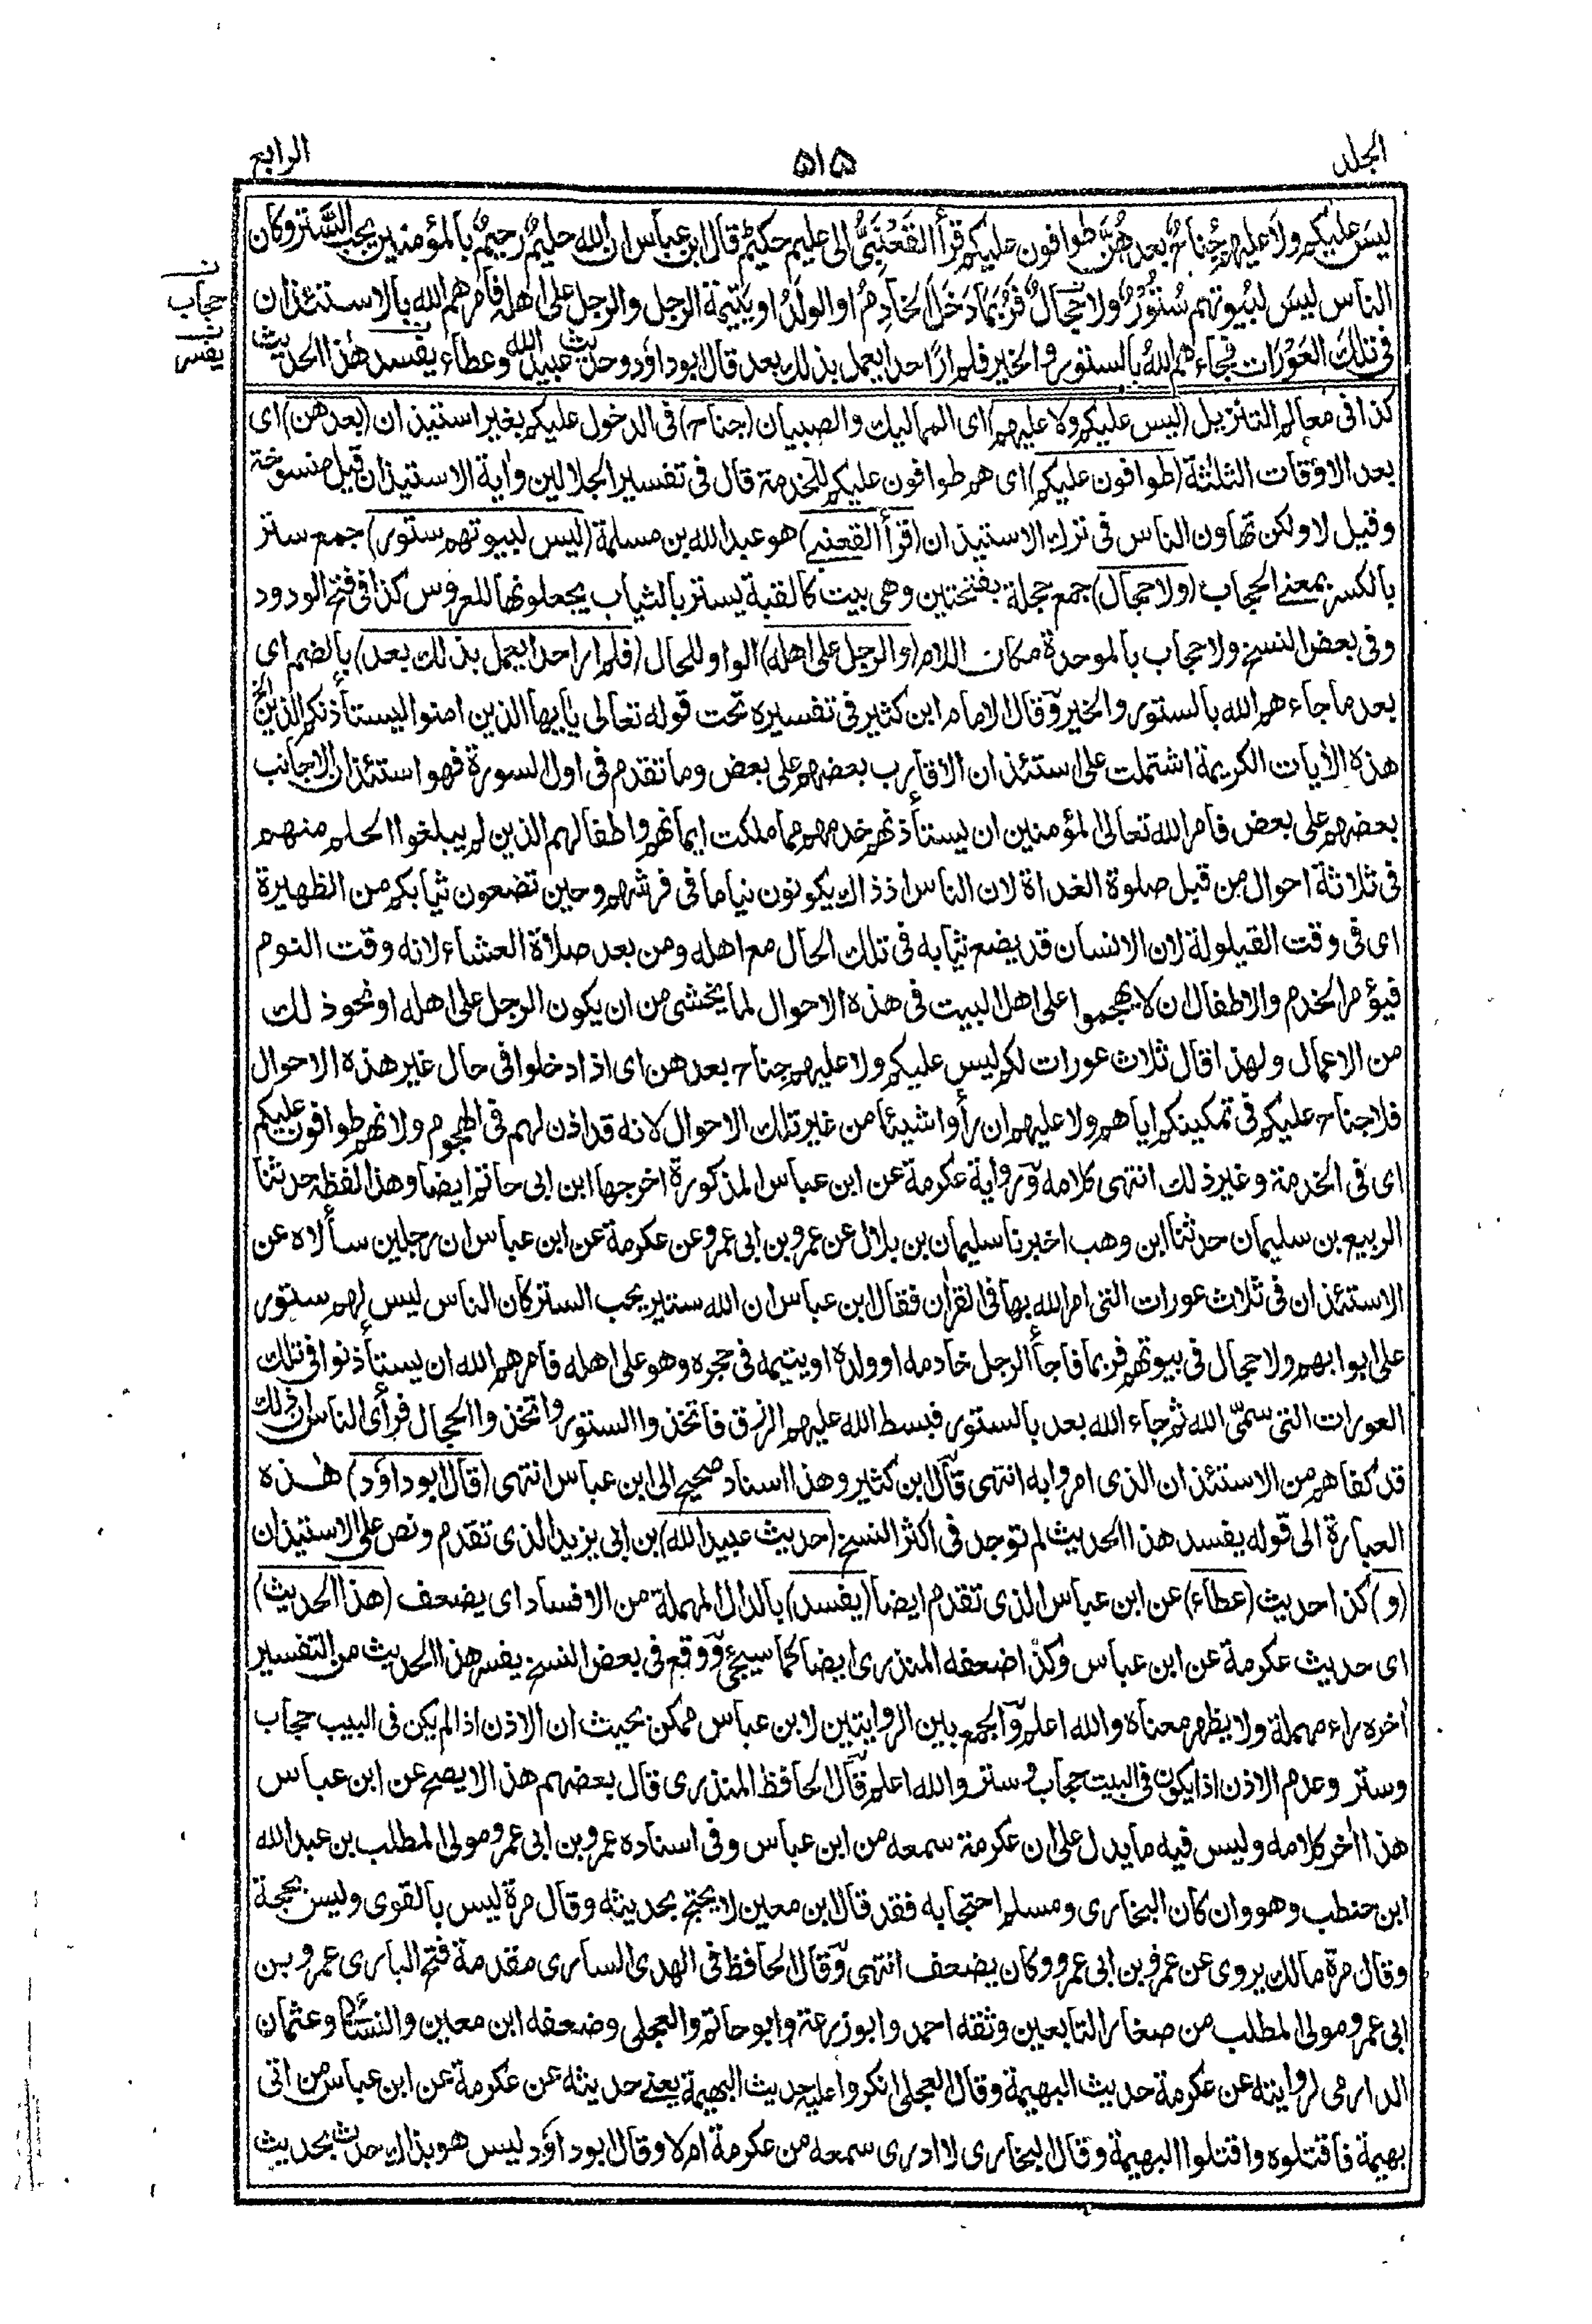 الجلد ٥١٥ الرابع
ليس عليكم ولا عليهم جناح بعدهن طوافون عليكم قرأ القعنبي الى عليم حكيم قال ابن عباس ان الله حليم رحيم بالمؤمنين يحب الستر وكان
الناس ليس لبيوتهم ستور ولا حجال فربما دخل الخادم او الولد او يتيمة الرجل والرجل على اهله فامرهم الله بالاستئذان
في تلك العورات فجاءهم الله بالستور والخير فلم ار احدا يعمل بذلك بعد قال ابو داود وحديث عبيد الله وعطاء يفسد هذا الحديث
ن
حجاب
ن
يفسر
كذا في معالم التنزيل (ليس عليكم ولا عليهم) اى المماليك والصبيان (جناح) فى الدخول عليكم بغير استيذان (بعدهن) اى
بعد الاوقات الثلثة (طوافون عليكم) اى هم طوافون عليكم للخدمة قال فى تفسير الجلالين واٰية الاستيذان قيل منسوخة
وقيل لا ولكن تهاون الناس فى ترك الاستيذان (قرأ القعنبے) هو عبد الله بن مسلمة (ليس لبيوتهم ستور) جمع ستر
بالكسر بمعنے الحجاب (ولا حجال) جمع حجلة بفتحتين وهى بيت كالقبة يستر بالثياب يجعلونها للعروس كذا فى فتح الودود
وفى بعض النسخ ولا حجاب بالموحدة مكان اللام (والرجل على اهله) الواو للحال (فلم ار احدا يعمل بذلك بعد) بالضم اى
بعد ما جاءهم الله بالستور والخير وقال الامام ابن كثير فى تفسيره تحت قوله تعالى يٰايها الذين امنوا ليستأذنكم الذين الخ
هذه الاٰيات الكريمة اشتملت على استئذان الاقارب بعضهم على بعض وما تقدم فى اول السورة فهو استئذان الاجانب
بعضهم على بعض فامر الله تعالى المؤمنين ان يستأذنهم خدمهم مما ملكت ايمانهم واطفالهم الذين لم يبلغوا الحلم منهم
فى ثلاثة احوال من قبل صلوة الغداة لان الناس اذ ذاك يكونون نياما فى فرشهم وحين تضعون ثيابكم من الظهيرة
اى فى وقت القيلولة لان الانسان قد يضع ثيابه فى تلك الحال مع اهله ومن بعد صلاة العشاء لانه وقت النوم
فيؤمر الخدم والاطفال ان لا يهجموا على اهل البيت فى هذه الاحوال لما يخشى من ان يكون الرجل على اهله او نحو ذلك
من الاعمال ولهذا قال ثلاث عورات لكم ليس عليكم ولا عليهم جناح بعدهن اى اذا دخلوا فى حال غير هذه الاحوال
فلا جناح عليكم فى تمكينكم اياهم ولا عليهم ان رأوا شيئا من غير تلك الاحوال لانه قد اذن لهم فى الهجوم ولانهم طوافون عليكم
اى فى الخدمة وغير ذلك انتهى كلامه ورواية عكرمة عن ابن عباس المذكورة اخرجها ابن ابى حاتم ايضا وهذا لفظه حدثنا
الربيع بن سليمان حدثنا ابن وهب اخبرنا سليمان بن بلال عن عمرو بن ابى عمرو عن عكرمة عن ابن عباس ان رجلين سألاه عن
الاستئذان فى ثلاث عورات التى امر الله بها فى القراٰن فقال ابن عباس ان الله ستير يحب الستر كان الناس ليس لهم ستور
على ابوابهم ولا حجال فى بيوتهم فربما فاجأ الرجل خادمه او ولده او يتيمه فى حجره وهو على اهله فامرهم الله ان يستأذنوا فى تلك
العورات التى سمّى الله ثم جاء الله بعد بالستور فبسط الله عليهم الرزق فاتخذوا الستور واتخذوا الحجال فرأى الناس ان ذلك
قد كفاهم من الاستئذان الذى امروا به انتهى قال ابن كثير وهذا اسناد صحيح الى ابن عباس انتهى (قال ابو داود) هٰذه
العبارة الى قوله يفسد هذا الحديث لم توجد فى اكثر النسخ (حديث عبيد الله) بن ابى يزيد الذى تقدم ونص على الاستيذان
(و) كذا حديث (عطاء) عن ابن عباس الذى تقدم ايضا (يفسد) بالدال المهملة من الافساد اى يضعف (هذا الحديث)
اى حديث عكرمة عن ابن عباس وكذا ضعفه المنذرى ايضا كما سيجئ ووقع فى بعض النسخ يفسر هذا الحديث من التفسير
اخره راء مهملة ولا يظهر معناه والله اعلم والجمع بين الروايتين لابن عباس ممكن بحيث ان الاذن اذا لم يكن فى البيت حجاب
وستر وعدم الاذن اذا يكون فى البيت حجاب وستر والله اعلم قال الحافظ المنذرى قال بعضهم هذا لا يصح عن ابن عباس
هذا اٰخر كلامه وليس فيه ما يدل على ان عكرمة سمعه من ابن عباس وفى اسناده عمرو بن ابى عمرو مولى المطلب بن عبد الله
ابن حنطب وهو وان كان البخارى ومسلم احتجا به فقد قال ابن معين لا يحتج بحديثه وقال مرة ليس بالقوى وليس بحجة
وقال مرة مالك يروى عن عمرو بن ابى عمرو وكان يضعف انتهى وقال الحافظ فى الهدى السارى مقدمة فتح البارى عمرو بن
ابى عمرو مولى المطلب من صغار التابعين وثقه احمد وابو زرعة وابو حاتم والعجلى وضعفه ابن معين والنسائى وعثمان
الدارمى لروايته عن عكرمة حديث البهيمة وقال العجلى انكروا عليه حديث البهيمة يعنے حديثه عن عكرمة عن ابن عباس من اتى
بهيمة فاقتلوه واقتلوا البهيمة وقال البخارى لا ادرى سمعه من عكرمة ام لا وقال ابو داود ليس هو بذاك حدث بحديث